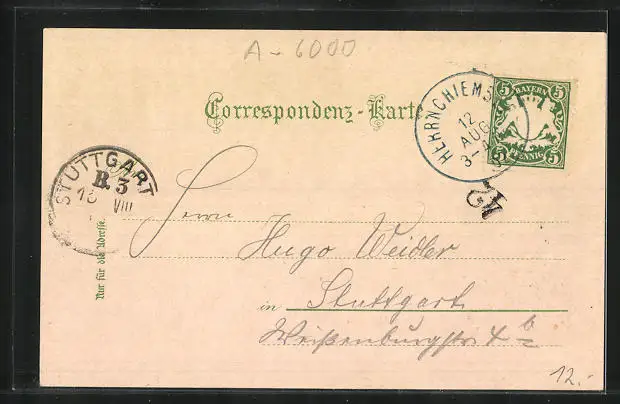 A-6000
Correspondenz-Karte
HERRNCHIEMS
12
AUG
3-4
5 BAYERN 5
5 PFENNIG 5
42
STUTTGART
B. 3
13 VIII
Nur für die Adresse.
Herrn
Hugo Weidler
in Stuttgart
Weißenburgstr 4 b
12.-